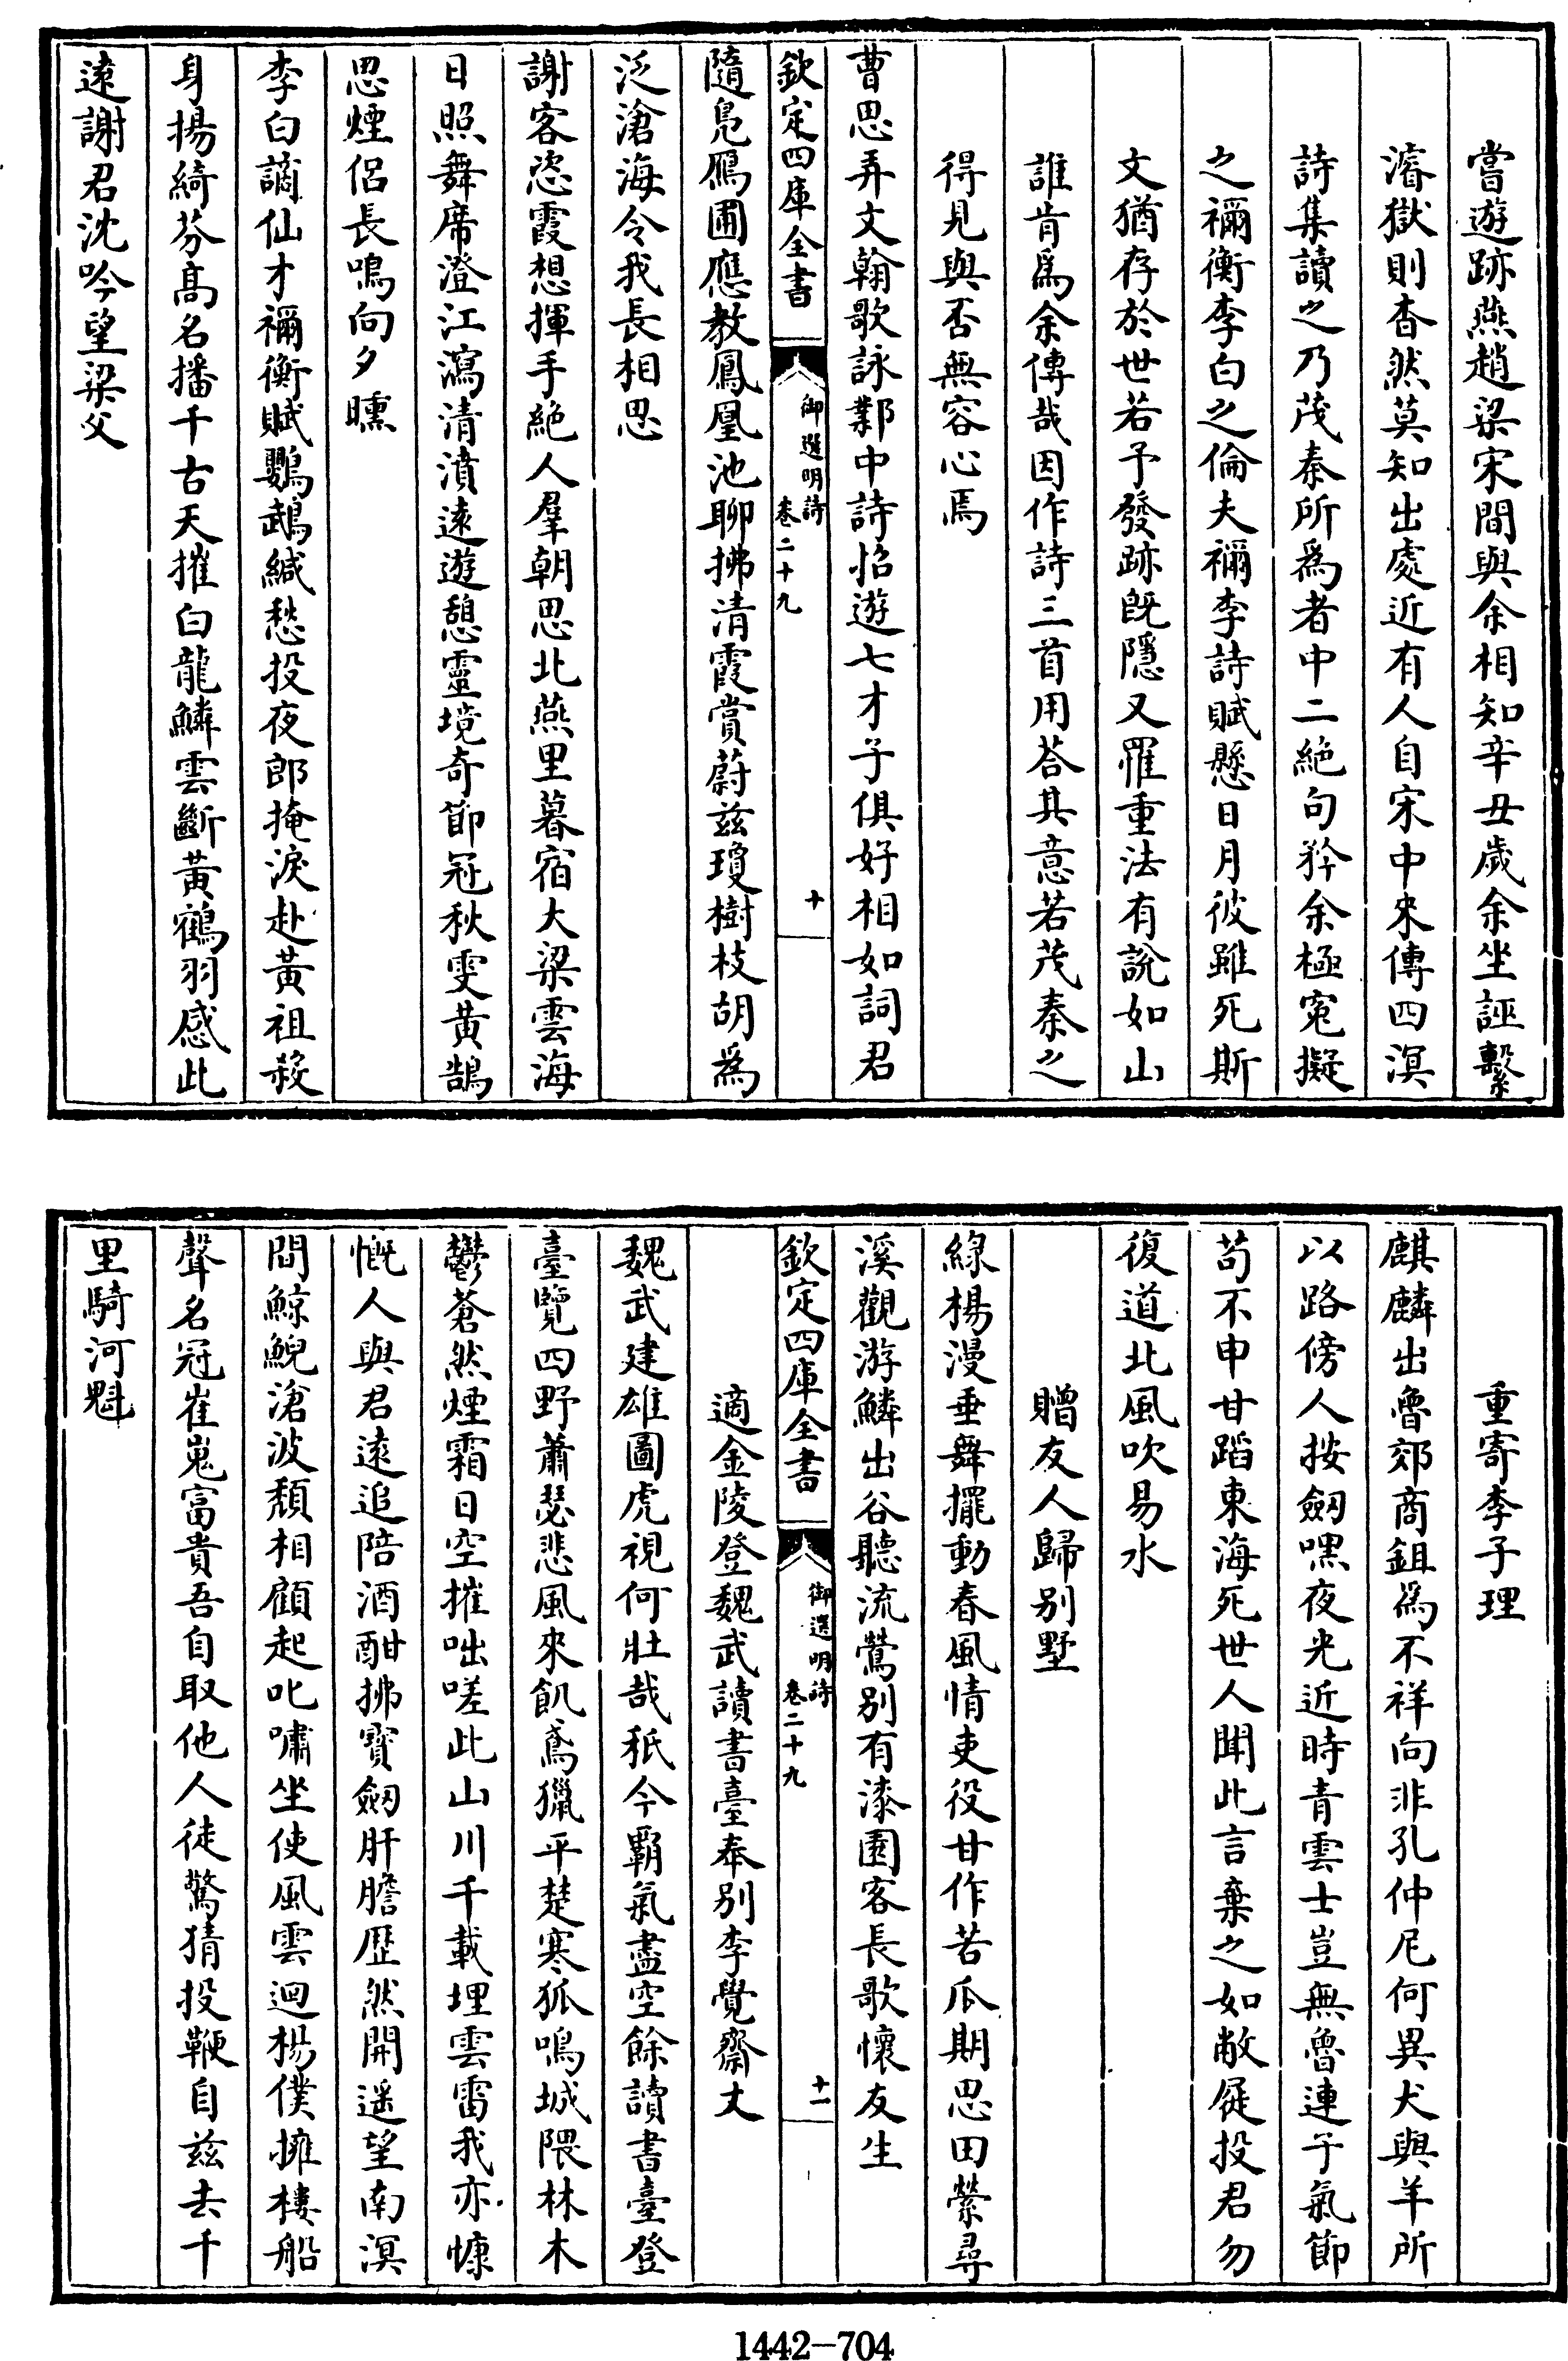 當遊跡燕趙梁宋間與余相知辛丑歲余坐誣繫
濬獄則杳然莫知出處近有人自宋中來傳四溟
詩集讀之乃茂秦所爲者中二絶句矜余極寃擬
之禰衡李白之倫夫禰李詩賦懸日月彼雖死斯
文猶存於世若予發跡旣隱又罹重法有說如山
誰肯爲余傳哉因作詩三首用荅其意若茂秦之
得見與否無容心焉
曹思弄文翰歌詠鄴中詩招遊七才子俱好相如詞君
欽定四庫全書
御選明詩
卷二十九
十
隨鳬鴈圃應敎鳳凰池聊拂清霞賞蔚兹瓊樹枝胡爲
泛滄海令我長相思
謝客恣霞想揮手絶人羣朝思北燕里暮宿大梁雲海
日照舞席澄江瀉清濆遠遊憩靈境奇節冠秋雯黃鵠
思煙侶長鳴向夕曛
李白謫仙才禰衡賦鸚鵡緘愁投夜郎掩淚赴黃祖殺
身揚綺芬高名播千古天摧白龍鱗雲斷黃鶴羽感此
遠謝君沈吟望梁父
重寄李子理
麒麟出魯郊商鉏爲不祥向非孔仲尼何異犬與羊所
以路傍人按劒嘿夜光近時青雲士豈無魯連子氣節
苟不申甘蹈東海死世人聞此言棄之如敝屣投君勿
復道北風吹易水
贈友人歸别墅
綠楊漫垂舞擺動春風情吏役甘作苦瓜期思田縈尋
溪觀游鱗出谷聽流鶯别有漆園客長歌懷友生
欽定四庫全書
御選明詩
卷二十九
十一
適金陵登魏武讀書臺奉别李覺齋丈
魏武建雄圖虎視何壯哉秖今覇氣盡空餘讀書臺登
臺覽四野蕭瑟悲風來飢鳶獵平楚寒狐鳴城隈林木
鬱蒼然煙霜日空摧咄嗟此山川千載埋雲雷我亦慷
慨人與君遠追陪酒酣拂寶劒肝膽歷然開遥望南溟
間鯨鯢滄波頹相顧起叱嘯坐使風雲迴楊僕擁樓船
聲名冠崔嵬富貴吾自取他人徒驚猜投鞭自兹去千
里騎河魁
1442-704